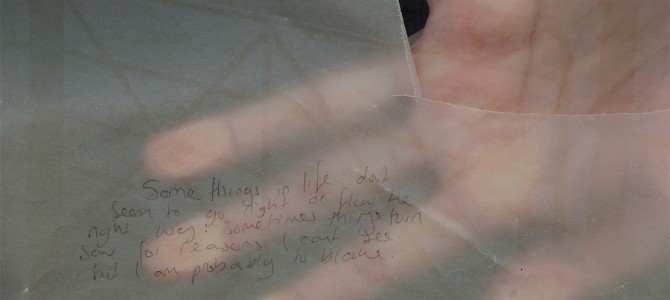 Some things in life don't
seem to go right or flow the
right way. Sometimes things turn
for reasons I can't
but I am probably to blame.